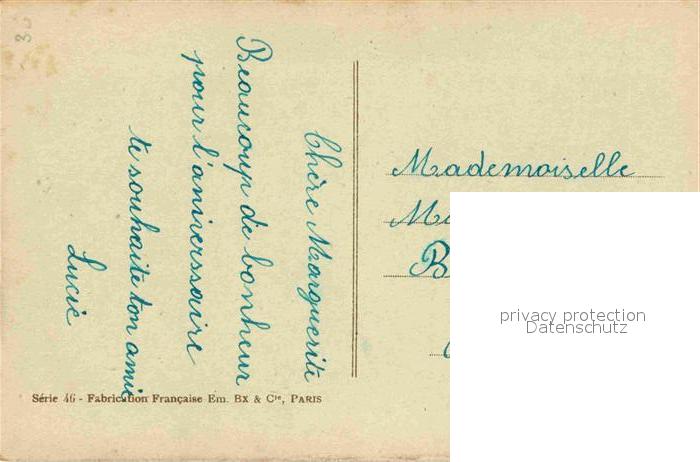 Chère Marguerite
Beaucoup de bonheur
pour l'aniversaire
te souhaite ton amie
Lucie
Mademoiselle
Série 46 - Fabrication Française Em. BX & Cie, PARIS
privacy protection
Datenschutz